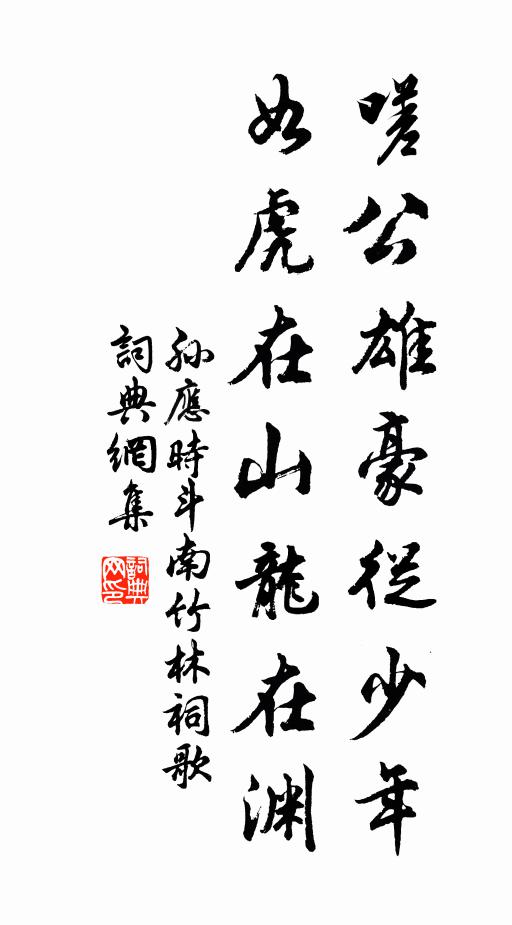 嗟公雄豪從少年
如虎在山龍在淵
孙應時斗南竹林祠歌
詞典網集
詞典网印